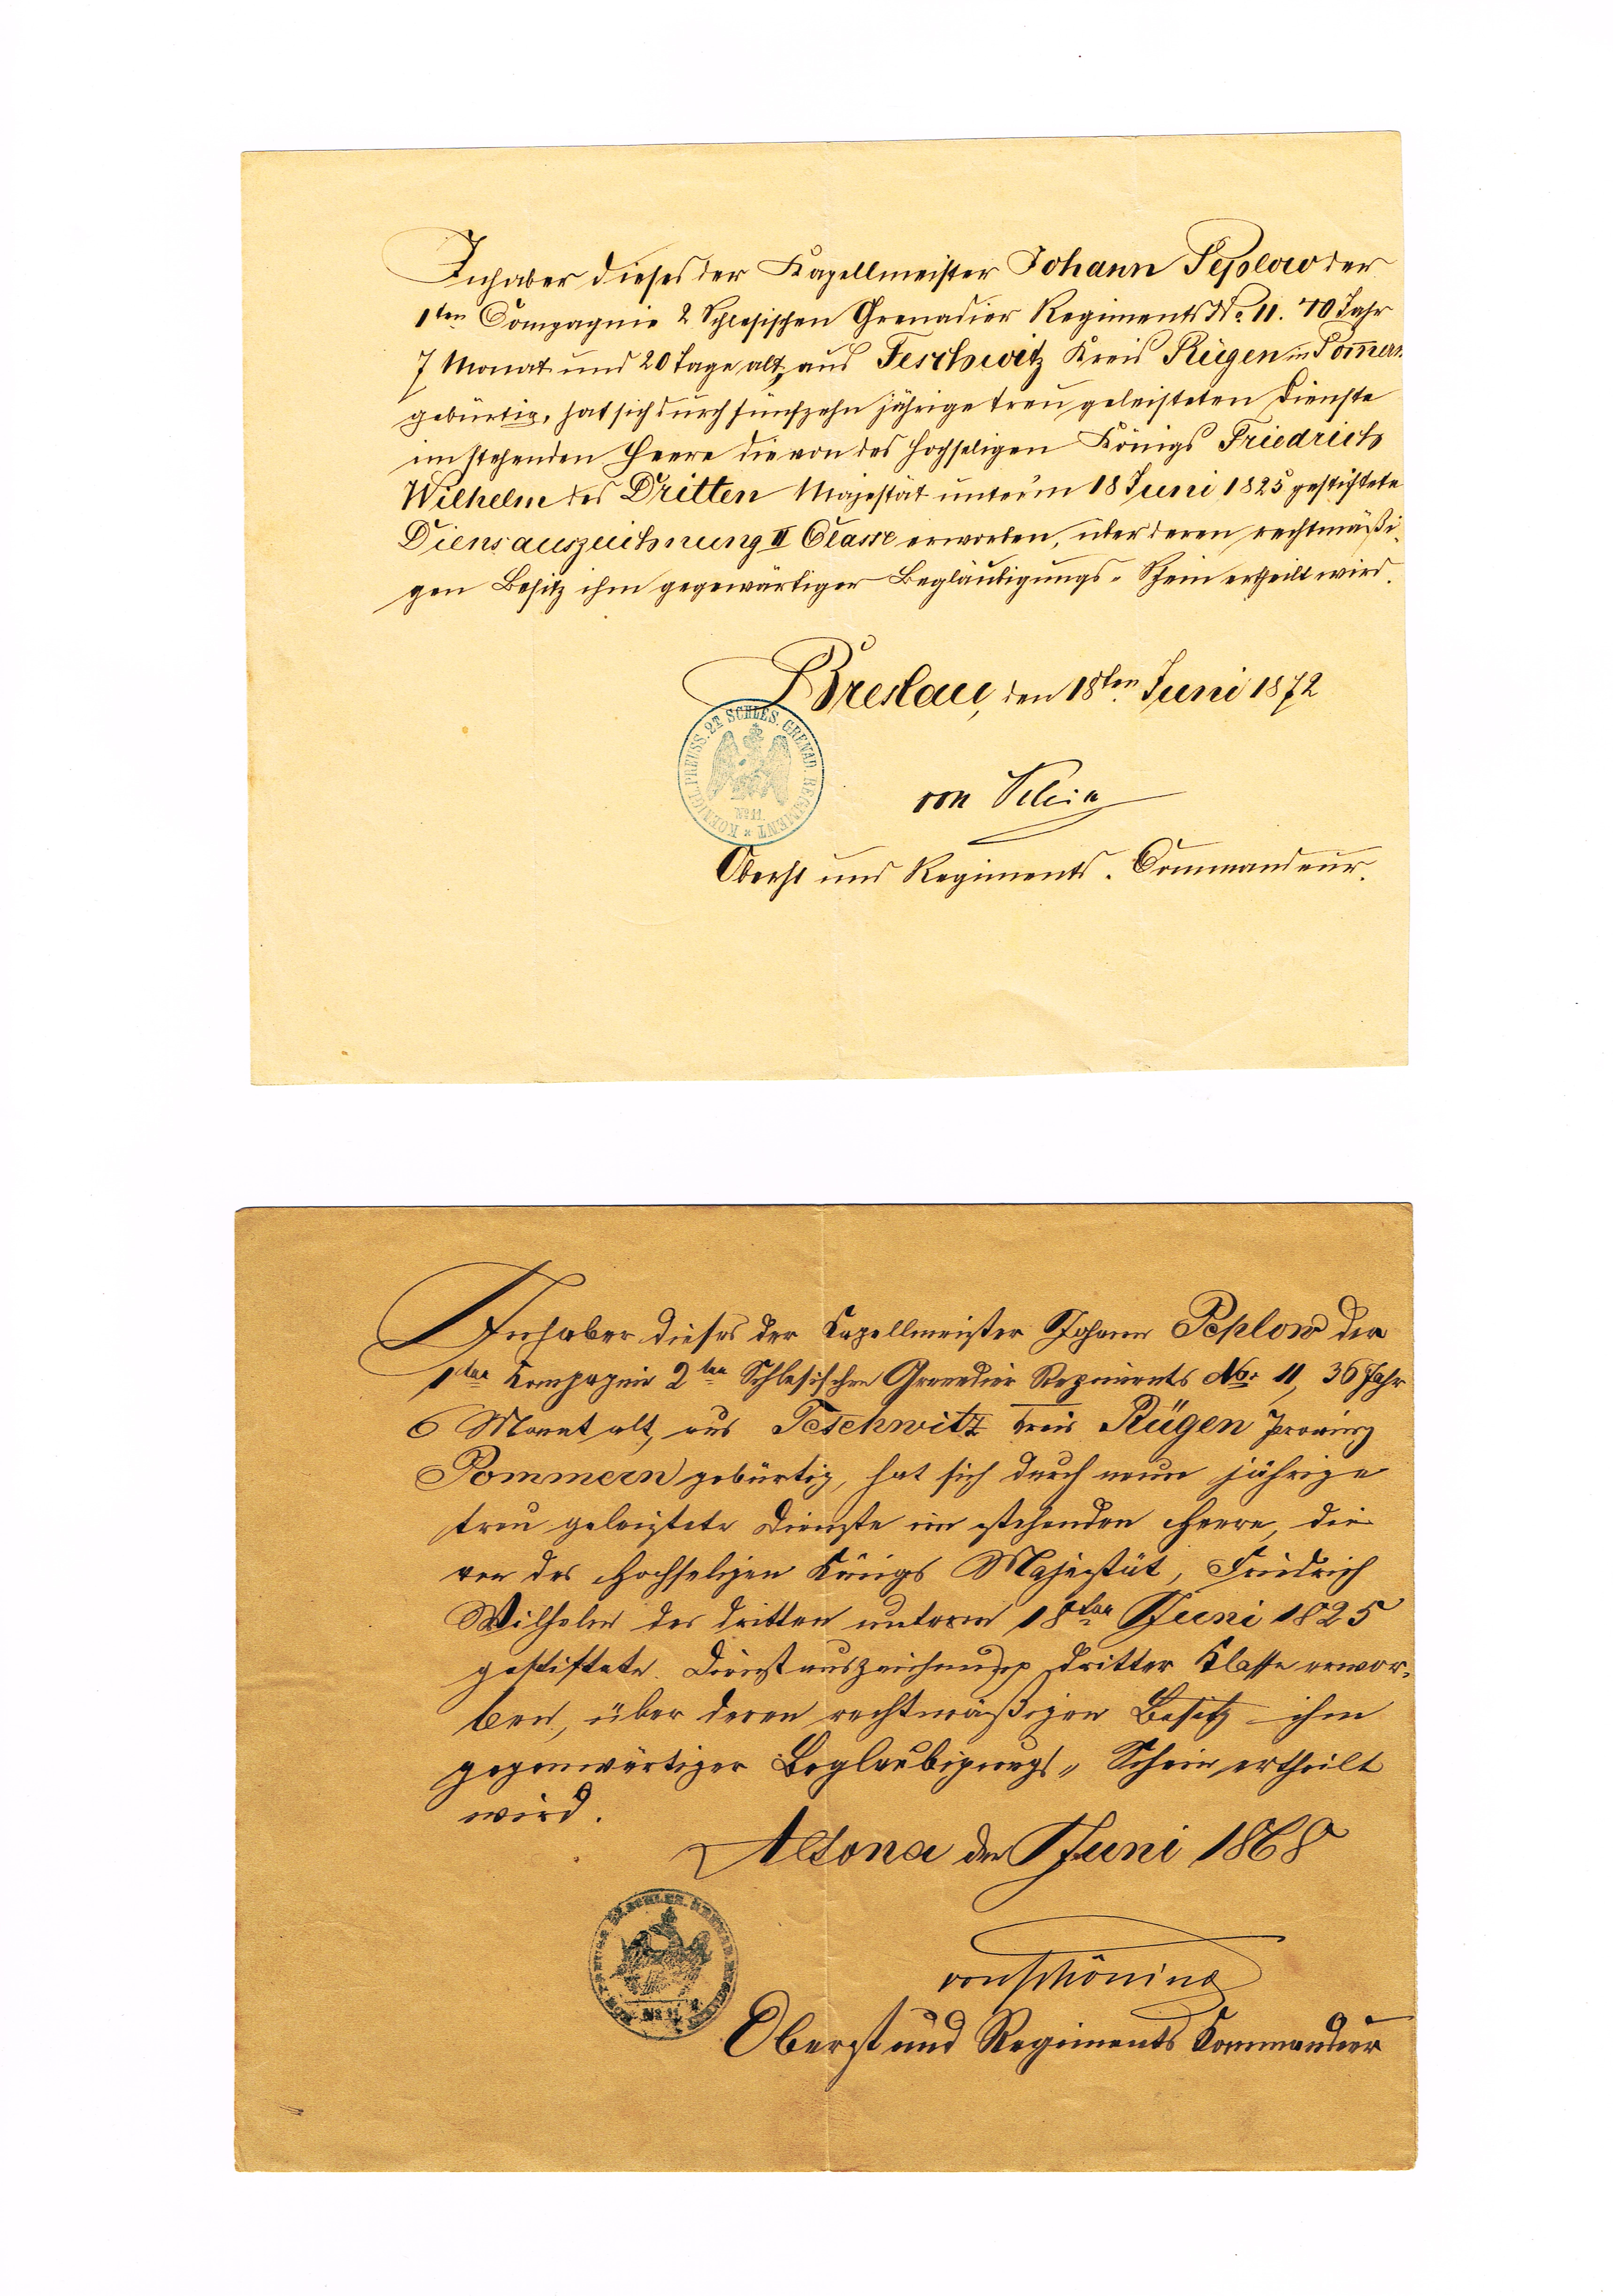 Inhaber dieses der Kapellmeister Johann Peplow der
1ten Compagnie 2 Schlesischen Grenadier Regiments No 11. 40 Jahr
7 Monat und 20 Tage alt, aus Teschwitz Kreis Rügen in Pom̄ern
gebürtig, hat sich durch fünfzehn jährige treu geleisteten Dienste
im stehenden Heere die von des hochseligen Königs Friedrich
Wilhelm des Dritten Majestät unter'm 18 Juni 1825 gestiftete
Diensauszeichnung II Classe erworben, über deren rechtmäßi-
gen Besitz ihm gegewärtiger Begläubigungs-Schein ertheilt wird.
Breslau, den 18ten Juni 1872
KOENIGL. PREUSS. 2T SCHLES. GRENAD. REGIMENT
No 11.
von
Oberst und Regiments-Commandeur.
Inhaber dieses der Kapellmeister Johann Peplow der
1ten Kompagnie 2ten Schlesischen Grenadier Regiments No: 11, 36 Jahr
6 Monat alt, aus Teschwitz Kreis Rügen Provinz
Pommern gebürtig, hat sich durch neun jährige
treu geleistete Dienste im stehenden Heere, die
von des Hochseligen Königs Majestät, Friedrich
Wilhelm des dritten unterm 18ten Juni 1825
gestiftete Dienstauszeichnung dritter Klasse erwor-
ben, über deren rechtmäßigen Besitz ihm
gegenwärtiger Beglaubigungs-Schein ertheilt
wird.
Altona den Juni 1868
No 11
von Schöning
Oberst und Regiments Kommandeur